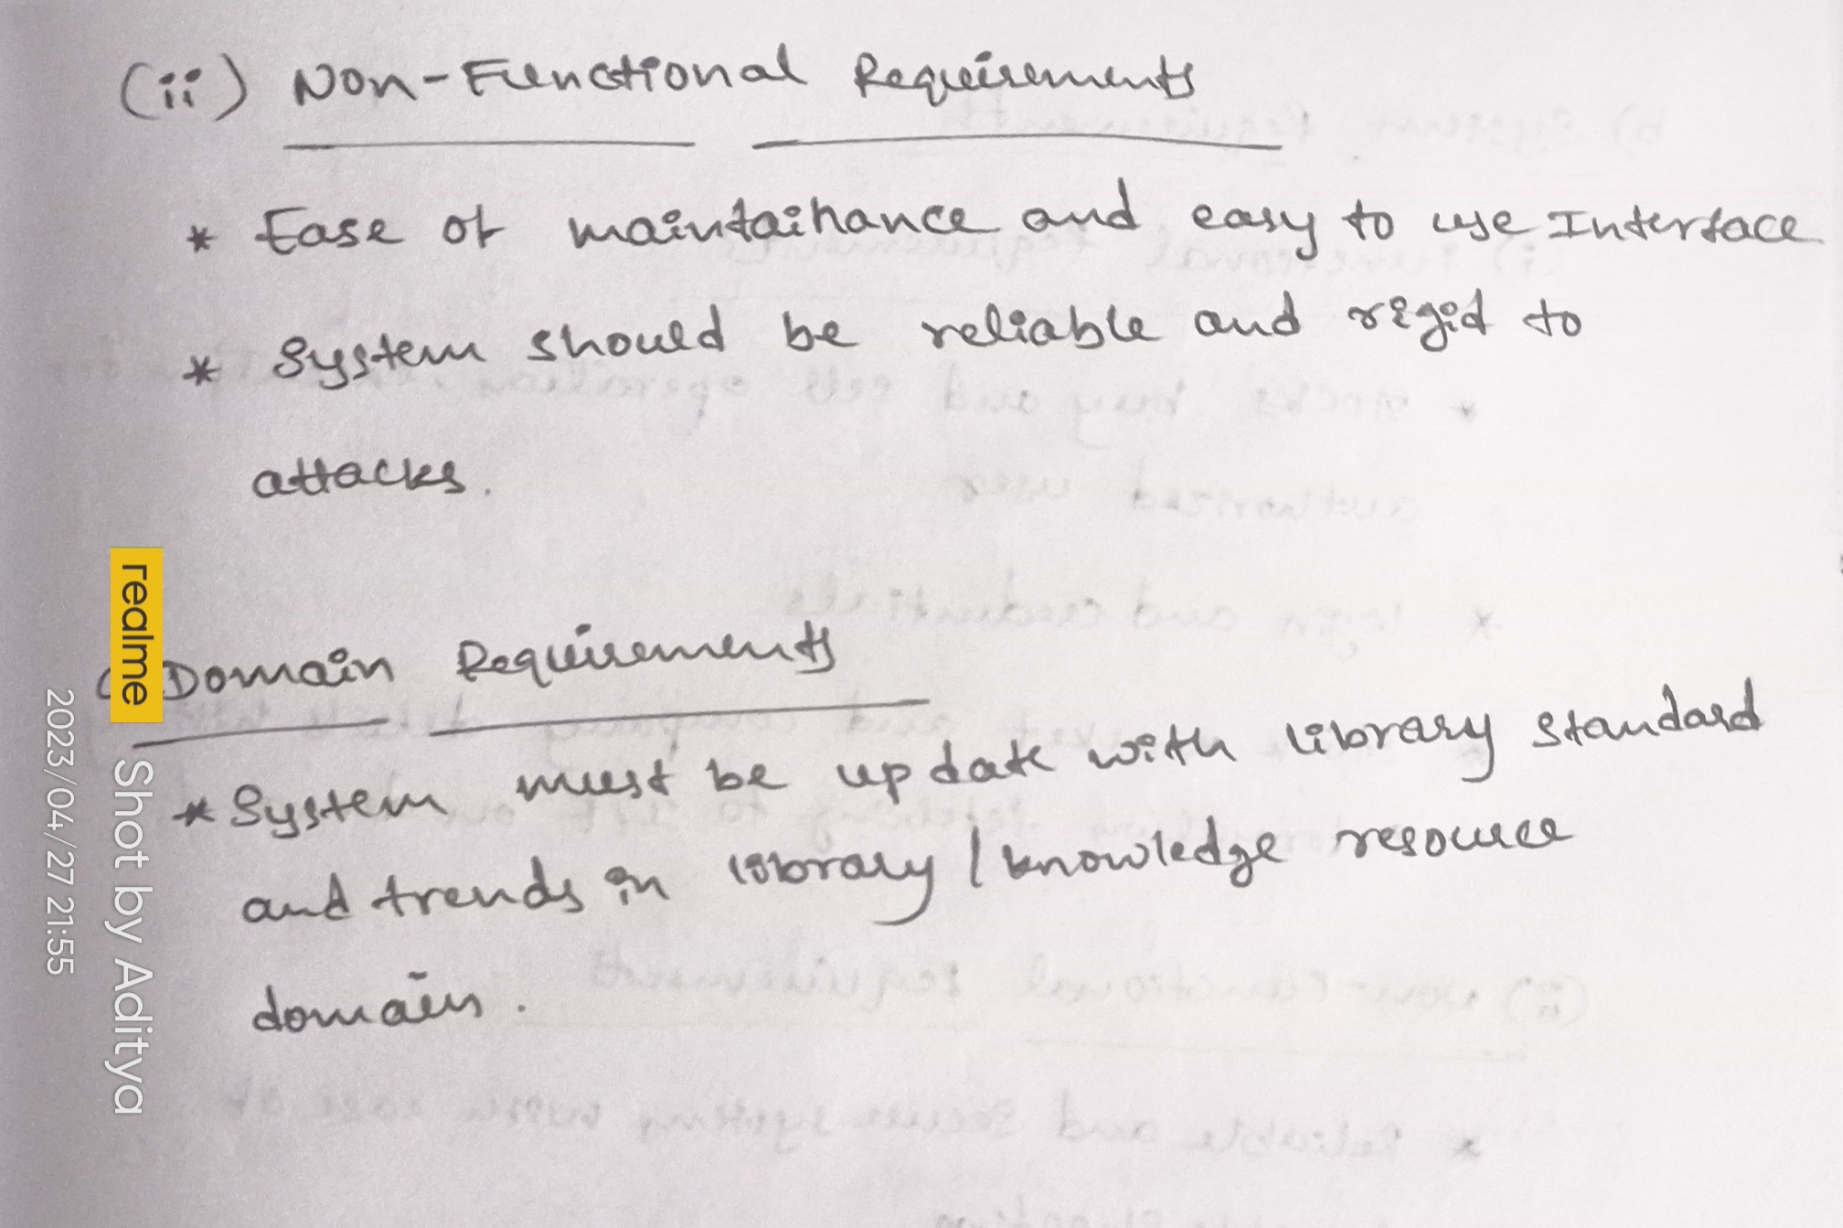 (ii) Non-Functional Requirements
* Ease of maintainance and easy to use Interface
* System should be reliable and rigid to
attacks.
Domain Requirements
* System must be update with library standard
and trends in library / knowledge resource
domain.
realme Shot by Aditya
2023/04/27 21:55